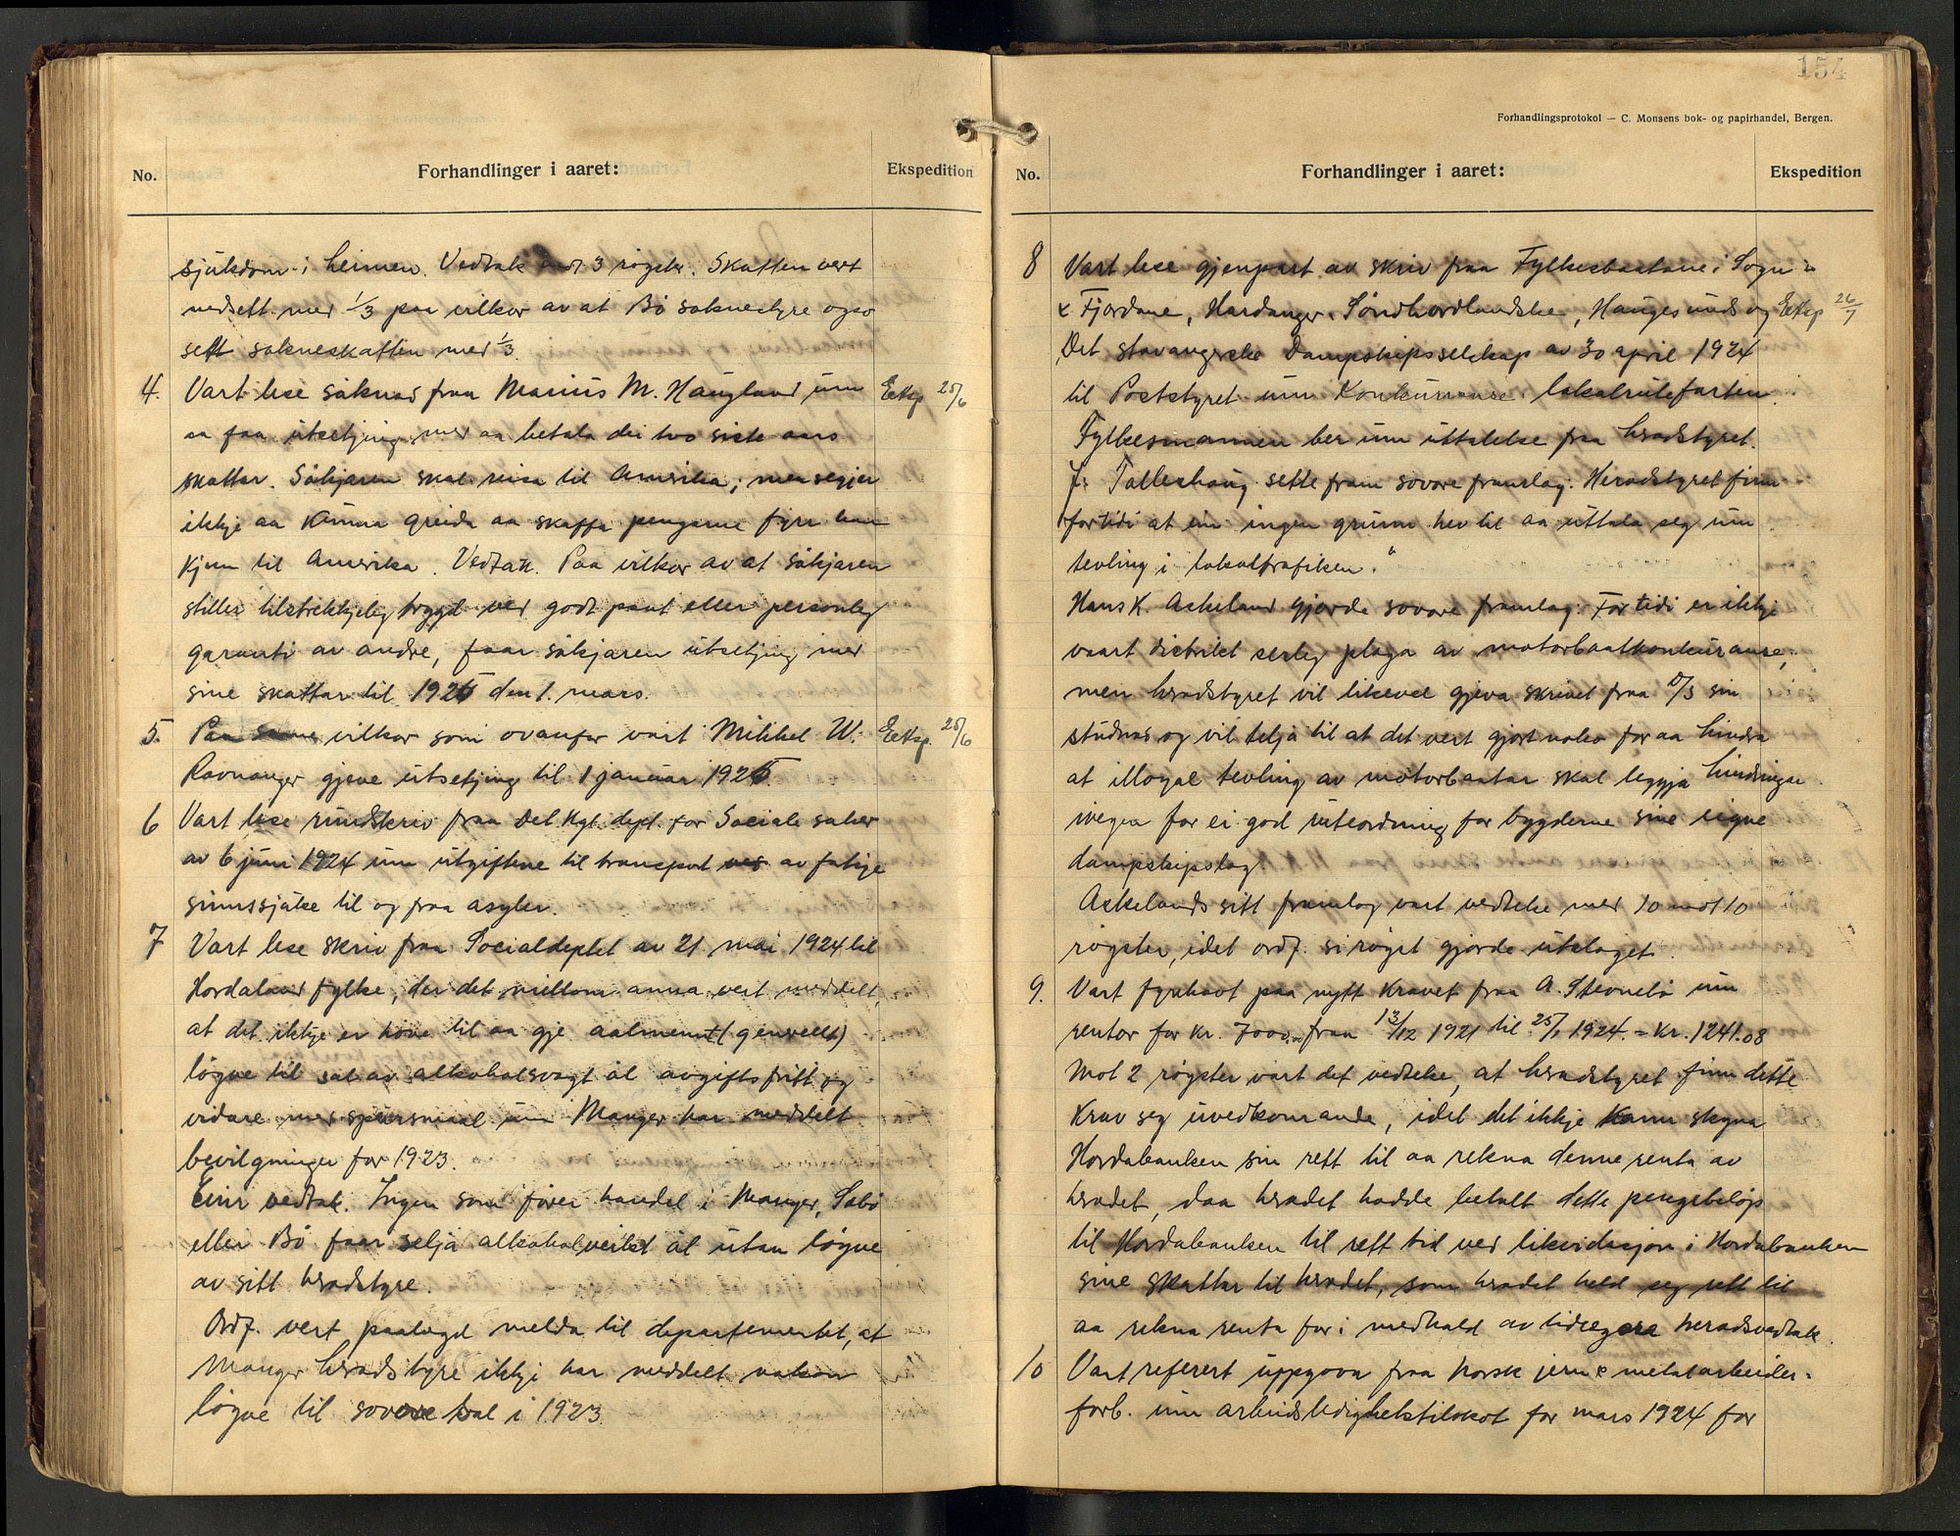 No.
Forhandlinger i aaret:
Ekspedition
sjukdom i heimen. Vedtak mot 3 røyster. Skatten vert
nedsett med 1/3 paa vilkor av at Bø soknestyre ogso
sett sokneskatten med 1/3.
4. Vart lese søknad fraa Marius M. Haugland um Eksp 25/6
aa faa utsetjing med aa betala dei tvo siste aars
skattar. Søkjaren skal reisa til Amerika; men segjer
ikkje aa kunna greida aa skaffa pengarne fyrr han
kjem til Amerika. Vedtak. Paa vilkor av at søkjaren
stiller tilstrekkjeleg trygd ved godt pant eller personleg
garanti av andre, faar søkjaren utsetjing med
sine skattar til 1925 den 1. mars.
5. Paa same vilkor som ovanfor vart Mikkel W. Eksp. 25/6
Ravnanger gjeve utsetjing til 1 januar 1925.
6 Vart lese rundskriv fraa Det Kgl. dept. for Sociale saker
av 6 juni 1924 um utgiftene til transport av fatige
sinnssjuke til og fraa asyler.
7 Vart lese skriv fraa Socialdeptet av 21 mai 1924 til
Hordaland fylke, der det millom anna vert meddelt,
at det ikkje er høve til aa gje aalment (generellt)
løyve til sal av alkoholsvagt øl avgiftsfritt og
vidare med spursmaal um Manger har meddelt
bevilgninger for 1923.
Einr vedtak. Ingen som fører handel i Manger, Sæbø
eller Bø faar selja alkoholveikt øl utan løyve
av sitt heradstyre.
Ordf. vert paalagd melda til departementet, at
Manger heradstyre ikkje har meddelt nokon
løyve til sovore sal i 1923.
154
Forhandlingsprotokol — C. Monsens bok- og papirhandel, Bergen.
No.
Forhandlinger i aaret:
Ekspedition
8 Vart lese gjenpart av skriv fraa Fylkesbaatane i Sogn
& Fjordane, Hardanger Søndhordlandske, Haugesunds og Eksp 26/7
Det stavangerske Dampskipsselskap av 30 april 1924
til Poststyret um Konkurranse i lokalrutefarten.
Fylkesmannen ber um uttalelse fraa heradstyret.
J. Tallehaug sette fram sovore framlag: Heradstyret finn
fortidi at ein ingen grunn hev til aa uttala seg um
tevling i lokaltrafiken."
Hans K. Askeland gjorde sovore framlag: For tidi er ikkje
vaart distrikt serleg plaga av motorbaatkonkuranse,
men heradstyret vil likevel gjeva skrivet fraa 10/3 sin
studnad og vil telja til at det vert gjort noko for aa hindra
at illoyal tevling av motorbaatar skal leggja hindringar
ivegen for ei god ruteordning for bygderne sine eigne
dampskipslag.
Askelands sitt framlag vart vedteke med 10 mot 10
røyster, idet ordf. si røyst gjorde utslaget.
9. Vart fyrehavt paa nytt kravet fraa A. Stevnebø um
rentor for kr. 7000,00 fraa 13/12 1921 til 25/1 1924. = Kr. 1241.08
Mot 2 røyster vart det vedteke, at heradstyret finn dette
krav seg uvedkomande, idet det ikkje kann skyna
Hordabanken sin rett til aa rekna denne renta av
heradet, daa heradet hadde betalt dette pengebeløp
til Hordabanken til rett tid ved likvidasjon i Hordabanken
sine skattar til heradet, som heradet held seg rett til
aa rekna renta for i medhald av tidlegare heradsvedtak.
10 Vart referert uppgova fraa Norsk jern & metalarbeider-
forb. um arbeidsledighetstilskot for mars 1924 for